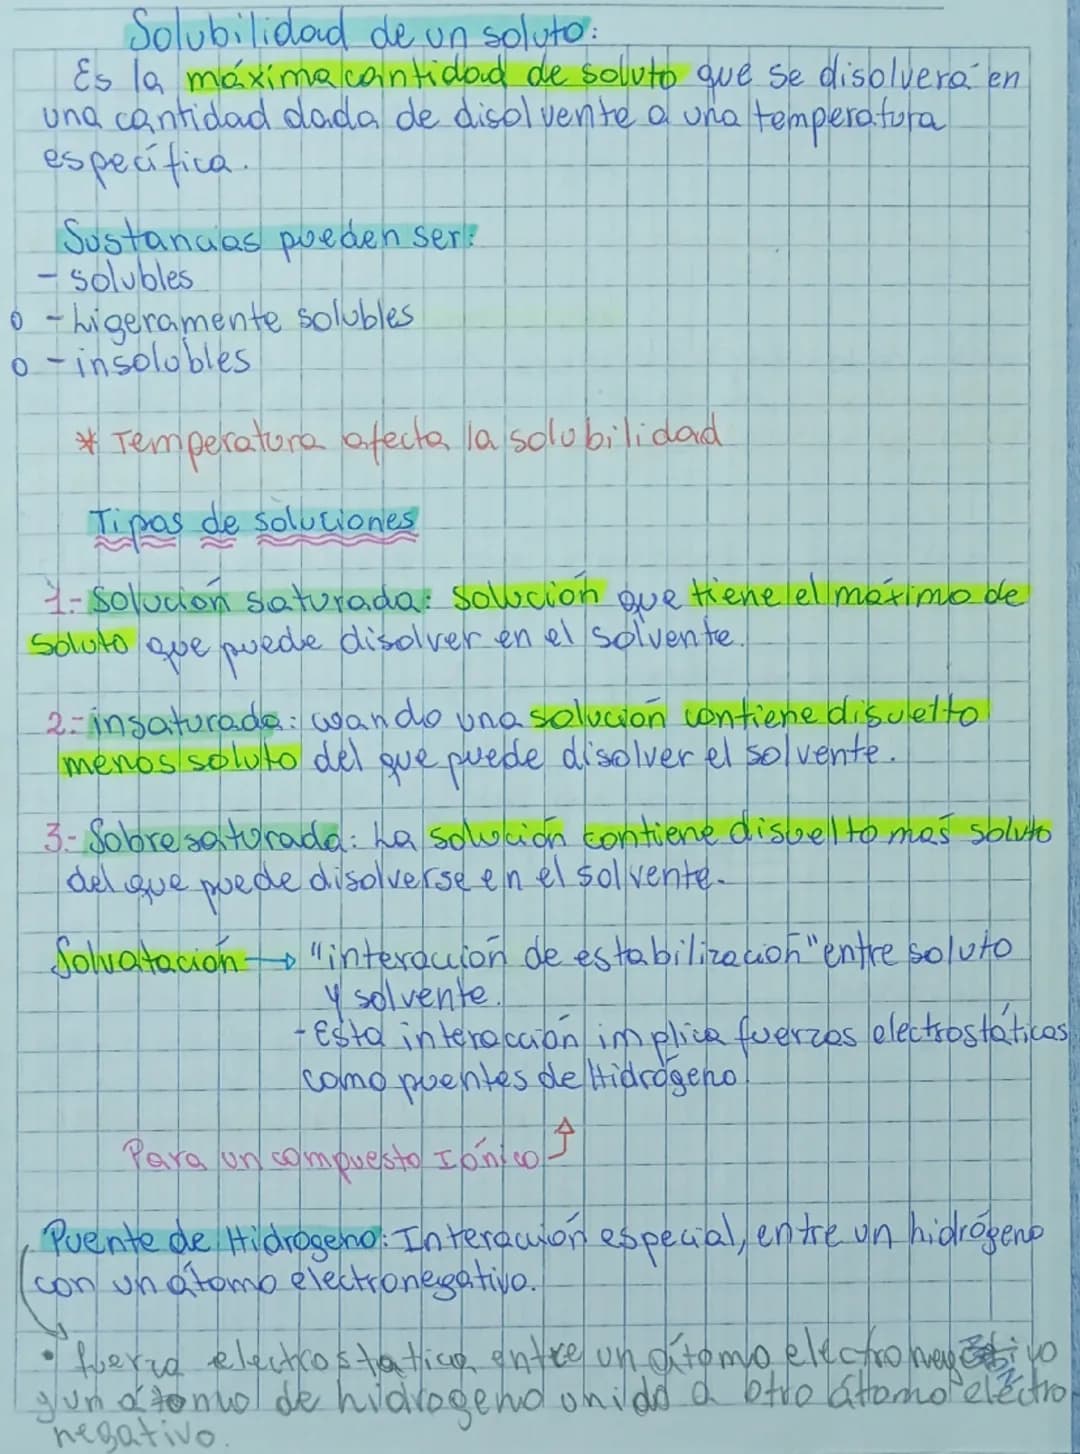 Solubilidad de un soluto:
Es la máxima cantidad de soluto que se disolverá en
una cantidad dada de disolvente a una temperatura
específica.
Sustancias pueden ser:
- solubles
- Ligeramente solubles
- insolubles
* Temperatura afecta la solubilidad
Tipos de soluciones
1.- Solución saturada: Solución que tiene el máximo de
soluto que puede disolver en el solvente.
2.- insaturada: cuando una solución contiene disuelto
menos soluto del que puede disolver el solvente.
3.- Sobresaturada: La solución contiene disuelto más soluto
del que puede disolverse en el solvente.
Solvatación → "interacción de estabilización" entre soluto
y solvente.
- Esta interacción implica fuerzas electrostáticas
como puentes de Hidrógeno
Para un compuesto Iónico
Puente de Hidrógeno: Interacción especial, entre un hidrógeno
con un átomo electronegativo.
• fuerza electrostatica entre un átomo electronegativo
y un átomo de hidrogeno unido a otro átomo electro
negativo.